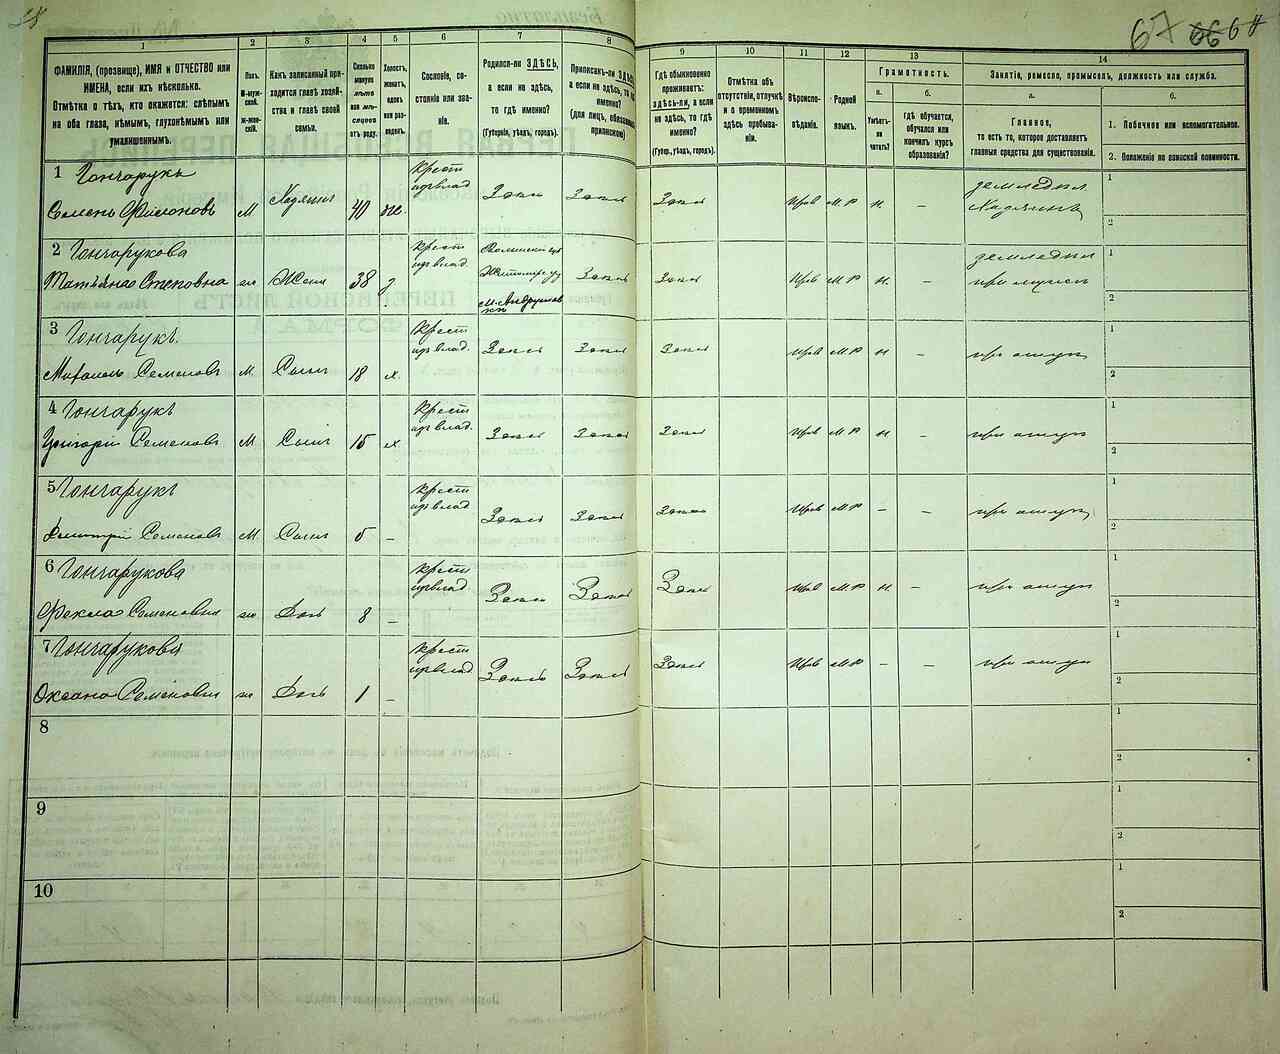 67 66 6
1 2 3 4 5 6 7 8 9 10 11 12 13 14
ФАМИЛІЯ, (прозвище), ИМЯ и ОТЧЕСТВО или
ИМЕНА, если ихъ нѣсколько.
Отмѣтка о тѣхъ, кто окажется: слѣпымъ
на оба глаза, нѣмымъ, глухонѣмымъ или
умалишеннымъ.
Полъ.
М-мужской.
Ж-женскій.
Какъ записанный приходится главѣ хозяйства и главѣ своей
семьи.
Сколько минуло лѣтъ или мѣсяцевъ отъ роду.
Холостъ, женатъ, вдовъ или разведенъ.
Сословіе, состояніе или званіе.
Родился-ли ЗДѢСЬ,
а если не здѣсь,
то гдѣ именно?
(Губернія, уѣздъ, городъ).
Приписанъ-ли ЗДѢСЬ,
а если не здѣсь, то гдѣ
именно?
(для лицъ, обязанныхъ
припискою)
Гдѣ обыкновенно
проживаетъ:
здѣсь-ли, а если
не здѣсь, то гдѣ
именно?
(Губер., уѣздъ, городъ).
Отмѣтка объ
отсутствіи, отлучкѣ
и о временномъ
здѣсь пребываніи.
Вѣроисповѣданіе.
Родной
языкъ.
Грамотность.
а.
Умѣетъ-ли
читать?
б.
гдѣ обучается,
обучался или
кончилъ курсъ
образованія?
Занятіе, ремесло, промыселъ, должность или служба.
а.
Главное,
то есть то, которое доставляетъ
главныя средства для существованія.
б.
1. Побочное или вспомогательное.
2. Положеніе по воинской повинности.
1 Гончарукъ Крест земледѣл 1
Семенъ Филимоновъ М Хозяинъ 40 же. изъ влад Здѣсь Здѣсь Здѣсь Прав М Р Н. – Хозяинъ 2
2 Гончарукова Крест Волынской губ земледѣл 1
Татьяна Степовна ж Жена 38 з изъ влад. Житомир. у Здѣсь Здѣсь Прав М Р Н. – при мужѣ 2
3 Гончарукъ Крест 1
Михаилъ Семеновъ М. Сынъ 18 х. изъ влад. Здѣсь Здѣсь Здѣсь Прав М Р Н – при отцѣ 2
4 Гончарукъ Крест 1
Григорій Семеновъ М Сынъ 15 х изъ влад. Здѣсь Здѣсь Здѣсь Прав М Р Н – при отцѣ 2
5 Гончарукъ Крест 1
Дмитрій Семеновъ М Сынъ 5 – изъ влад Здѣсь Здѣсь Здѣсь Прав М Р – – при отцѣ 2
6 Гончарукова Крест 1
Фекла Семеновна ж Дочь 8 – изъ влад Здѣсь Здѣсь Здѣсь Прав М Р Н. – при отцѣ 2
7 Гончарукова Крест 1
Оксана Семеновна ж Дочь 1 – изъ влад Здѣсь Здѣсь Здѣсь Прав М Р – – при отцѣ 2
8 1
2
9 1
2
10 1
2